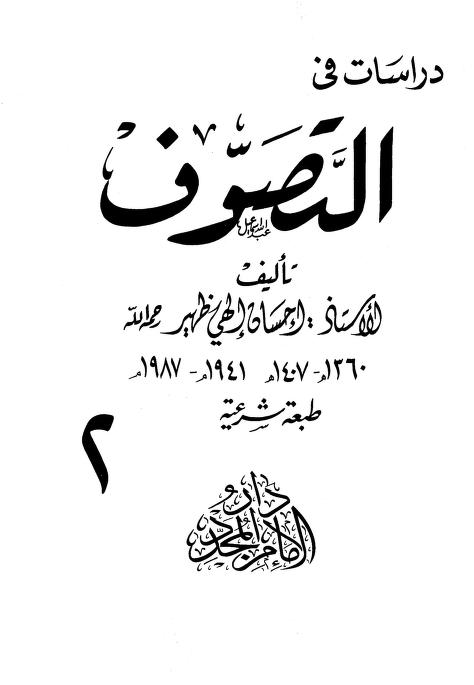 دراسات في
التصوّف
تأليف
الأستاذ: إحسان إلهي ظهير رحمه الله
١٣٦٠هـ - ١٤٠٧هـ ١٩٤١م - ١٩٨٧م
طبعة شرعية
٢
دار
الإمام المجدد